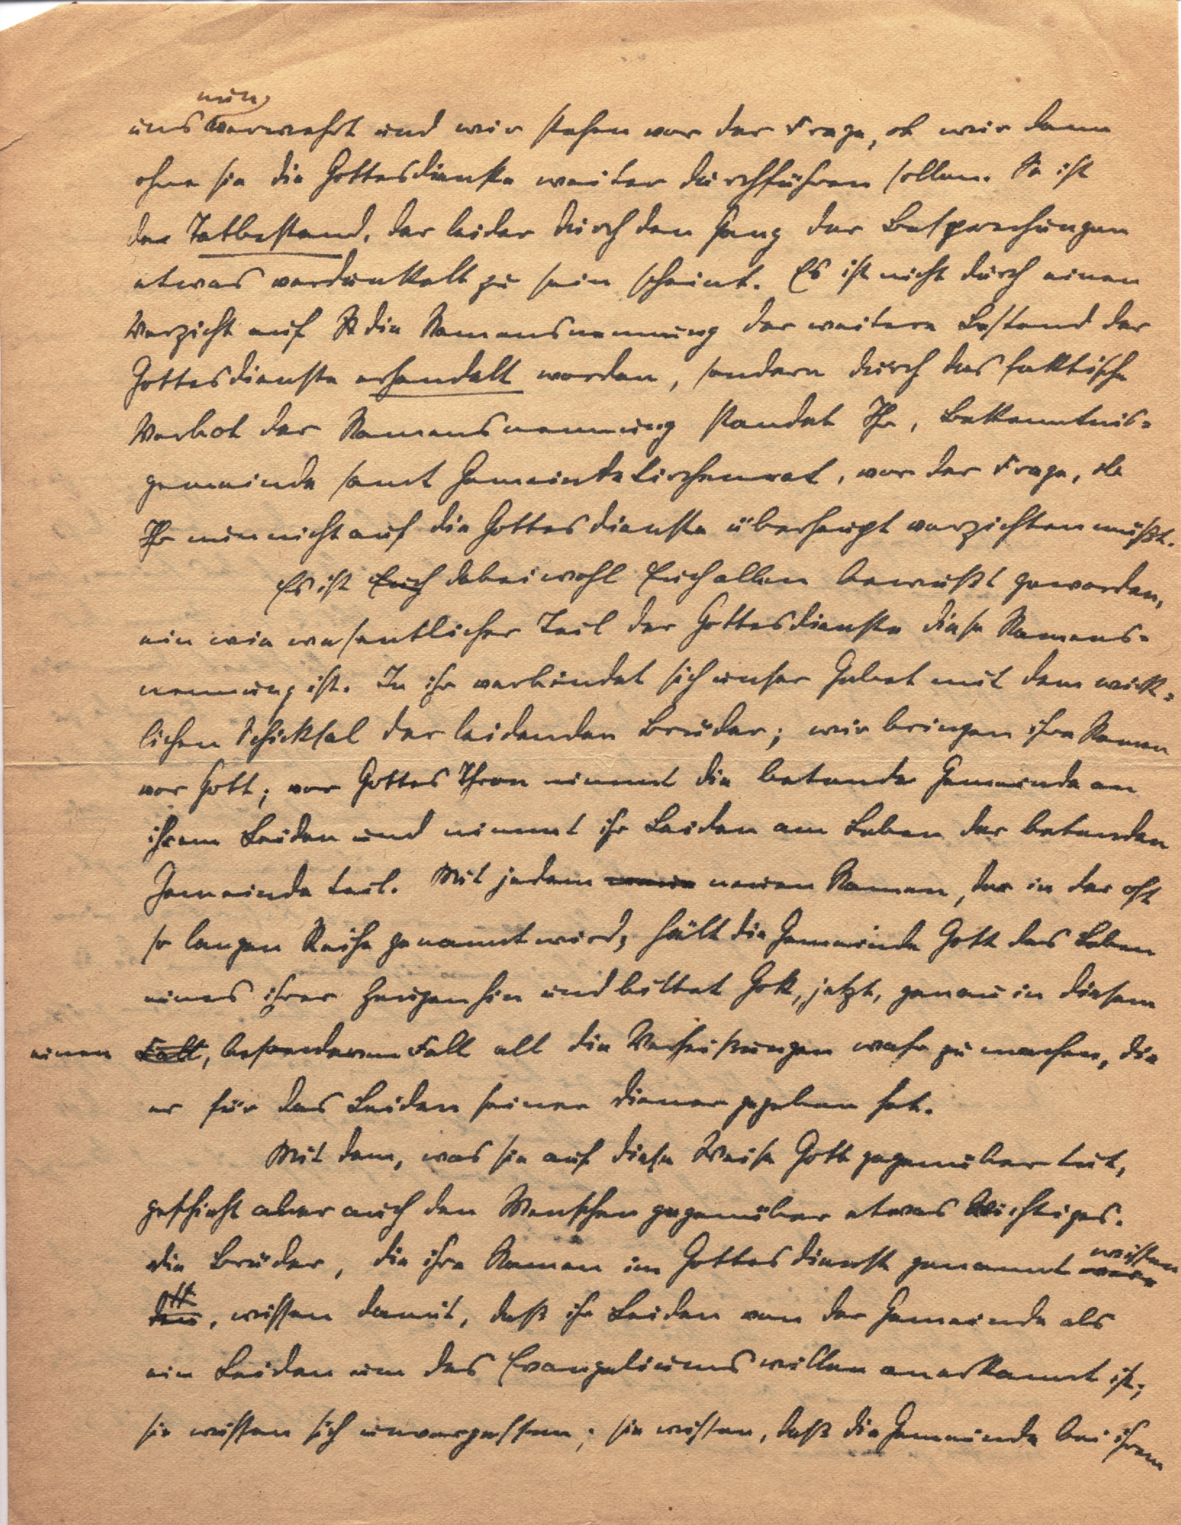 nun
uns verwehrt und wir stehen vor der Frage, ob wir denn
ohne sie die Gottesdienste weiter durchführen sollen. So ist
der Tatbestand, der leider durch den Gang der Besprechungen
etwas verdunkelt zu sein scheint. Es ist nicht durch einen
Verzicht auf die Namensnennung der weitere Bestand der
Gottesdienste erhandelt worden, sondern durch das faktische
Verbot der Namensnennung standet Ihr, Bekenntnis-
gemeinde samt Gemeindekirchenrat, vor der Frage, ob
Ihr nun nicht auf die Gottesdienste überhaupt verzichten müßt.
Es ist Euch dabei wohl Euch allen bewußt geworden,
ein wie wesentlicher Teil der Gottesdienste diese Namens-
nennung ist. In ihr verbindet sich unser Gebet mit dem wirk-
lichen Schicksal der leidenden Brüder; wir bringen ihre Namen
vor Gott; vor Gottes Thron nimmt die betende Gemeinde an
ihrem Leiden und nimmt ihr Leiden am Leben der betenden
Gemeinde teil. Mit jedem neuen Namen, der in der oft
so langen Reihe genannt wird, hält die Gemeinde Gott das Leben
eines ihrer Zeugen hin und bittet Gott, jetzt, genau in diesem
einen Fall, besonderen Fall all die Verheißungen wahr zu machen, die
er für das Leiden seiner Diener gegeben hat.
Mit dem, was sie auf diese Weise Gott gegenüber tut,
geschieht aber auch den Menschen gegenüber etwas Wichtiges.
Die Brüder, die ihre Namen im Gottesdienst genannt wissen
, wissen damit, daß ihr Leiden von der Gemeinde als
ein Leiden um des Evangeliums willen anerkannt ist;
sie wissen sich unvergessen; sie wissen, daß die Gemeinde bei ihrem